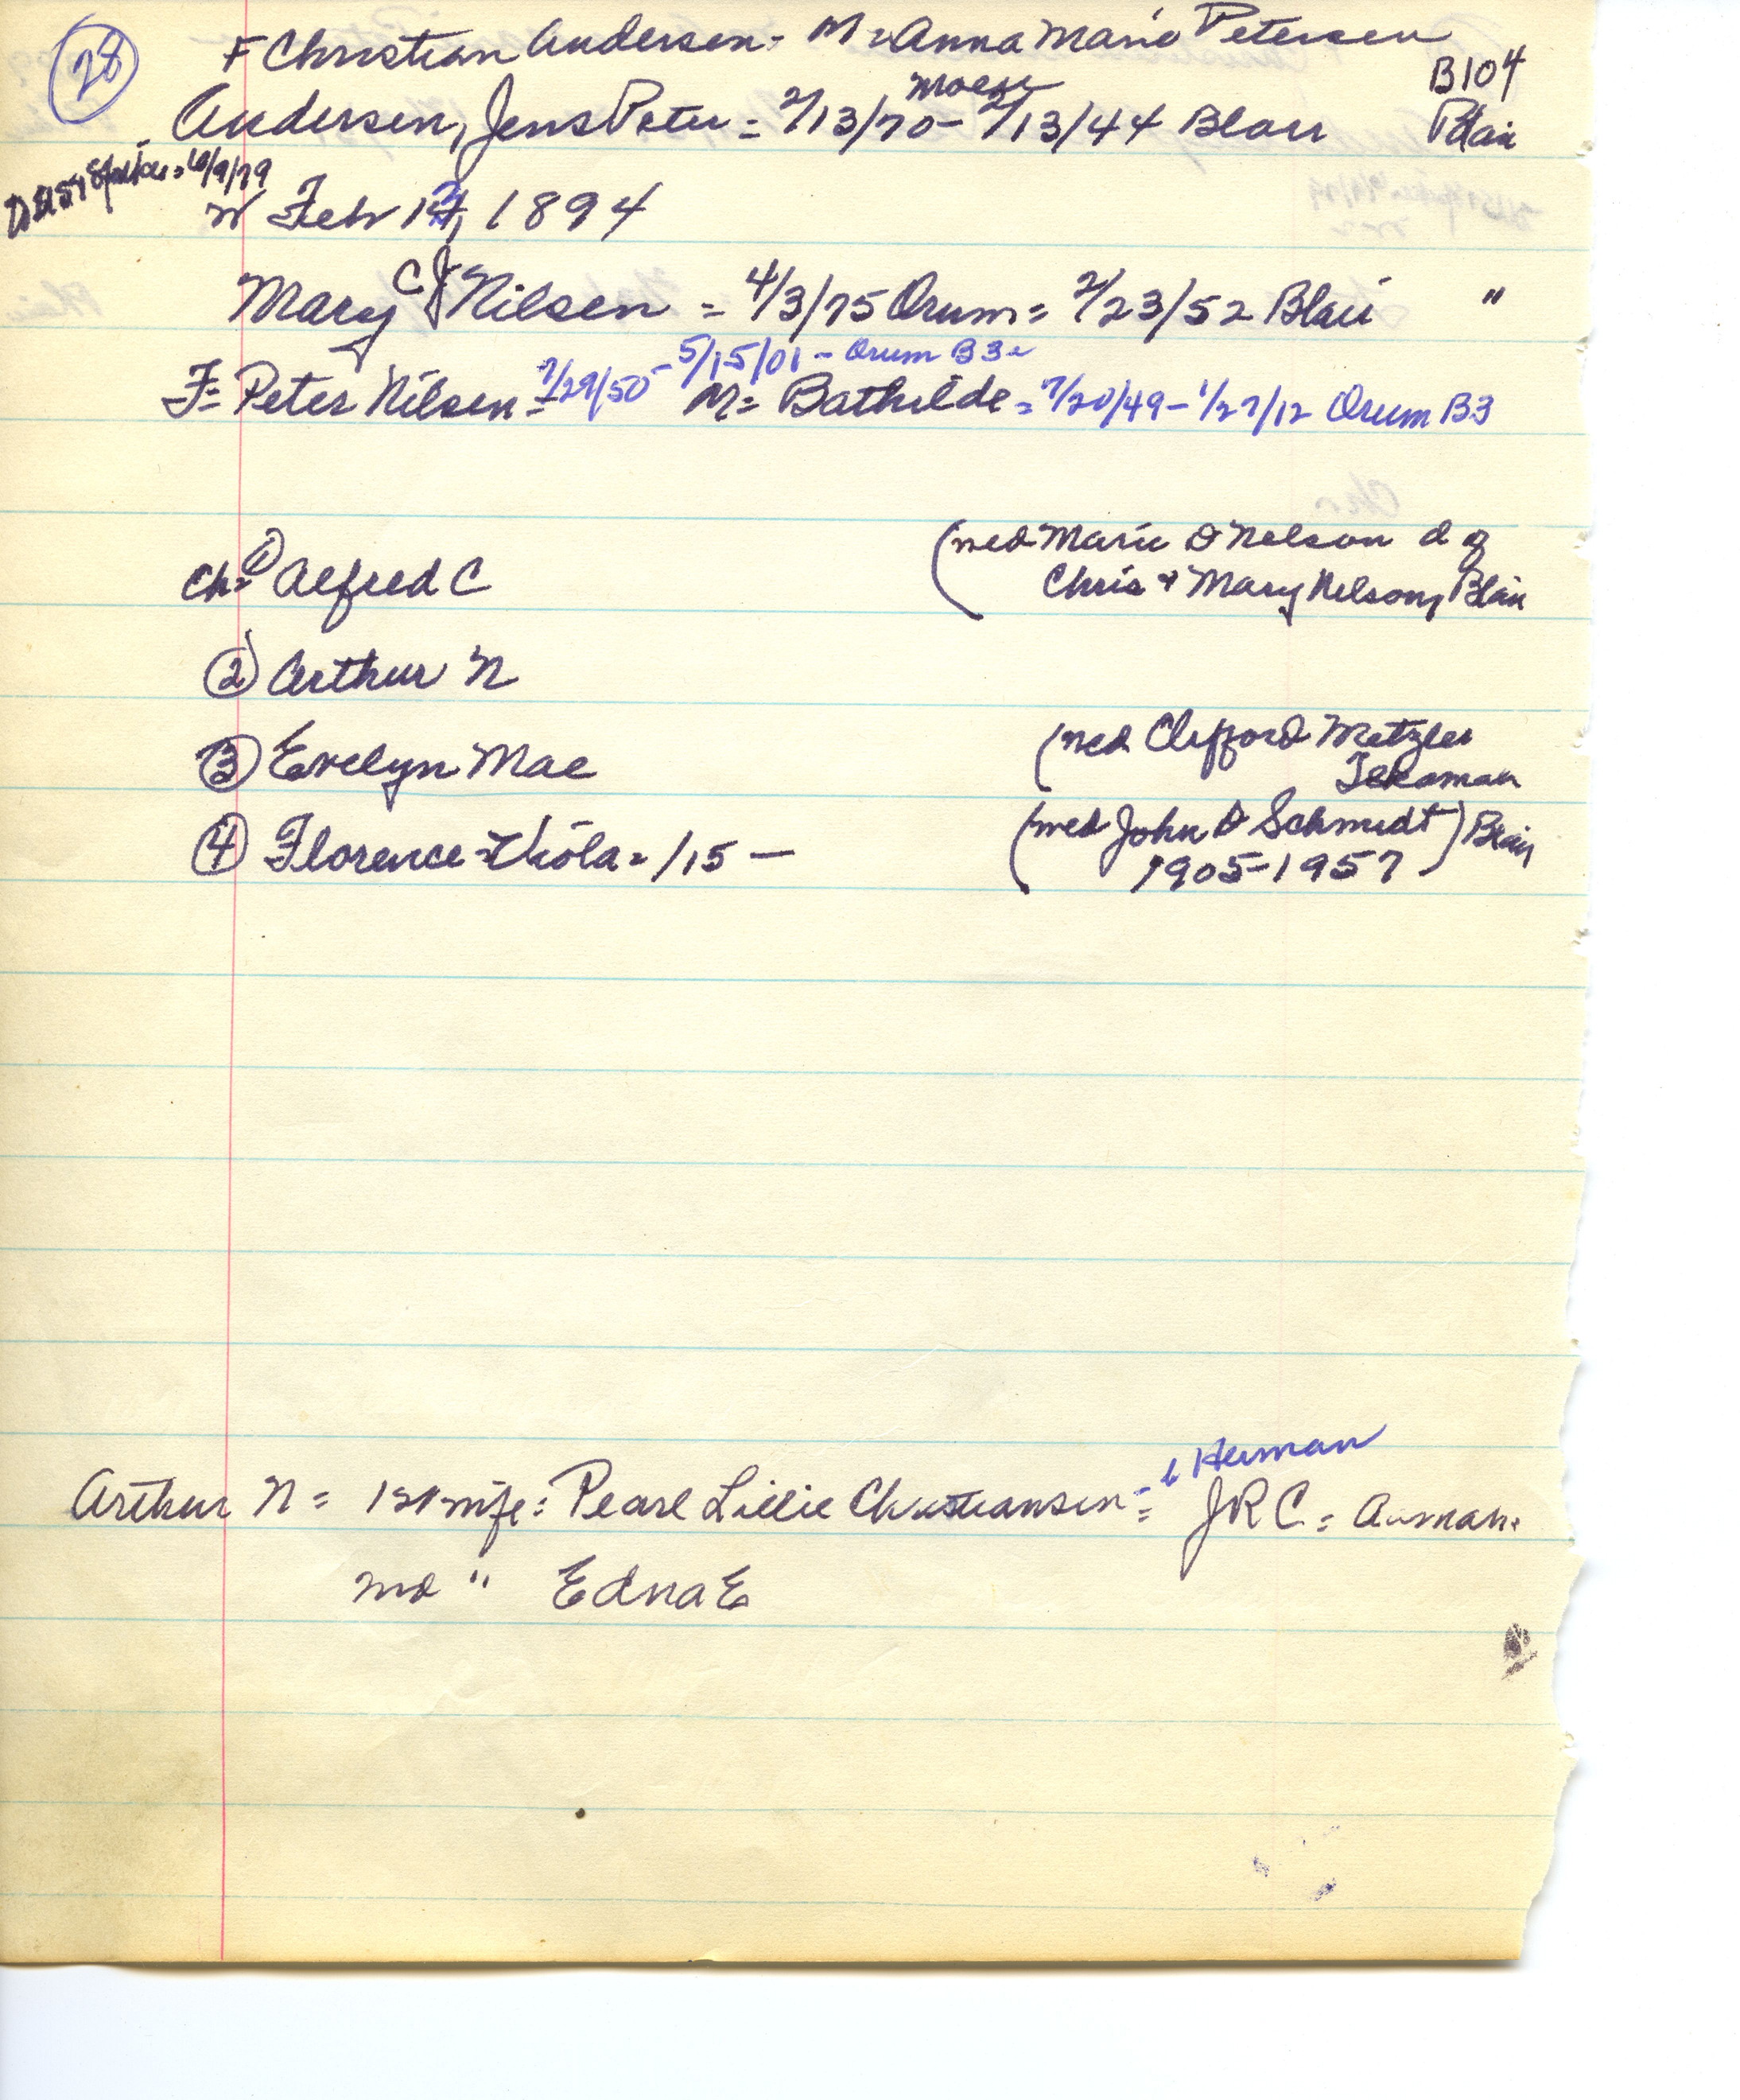 28
F Christian Andersen - M = Anna Marie Petersen
B104
Andersen, Jens Peter = 2/13/70 - 2/13/44 Blair Blair
= 6/9/79
Feb 1, 1894
Mary C J Nilsen = 4/3/75 Orum = 2/23/52 Blair "
5/15/01 - Orum B3
F = Peter Nilsen = 7/29/50 - M = Bathilde = 7/20/49 - 1/27/12 Orum B3
(med Marie D Nelson d of
Ch = ① Alfred C Chris + Mary Nelson, Blair
② Arthur N
(med Clifford Metzler
③ Evelyn Mae Tekamah
④ Florence Viola = /15 — (med John D Schmidt) Blair
1905-1957
Herman
Arthur N = 1st wife = Pearl Lillie Christiansen = JRC =
2nd " Edna E